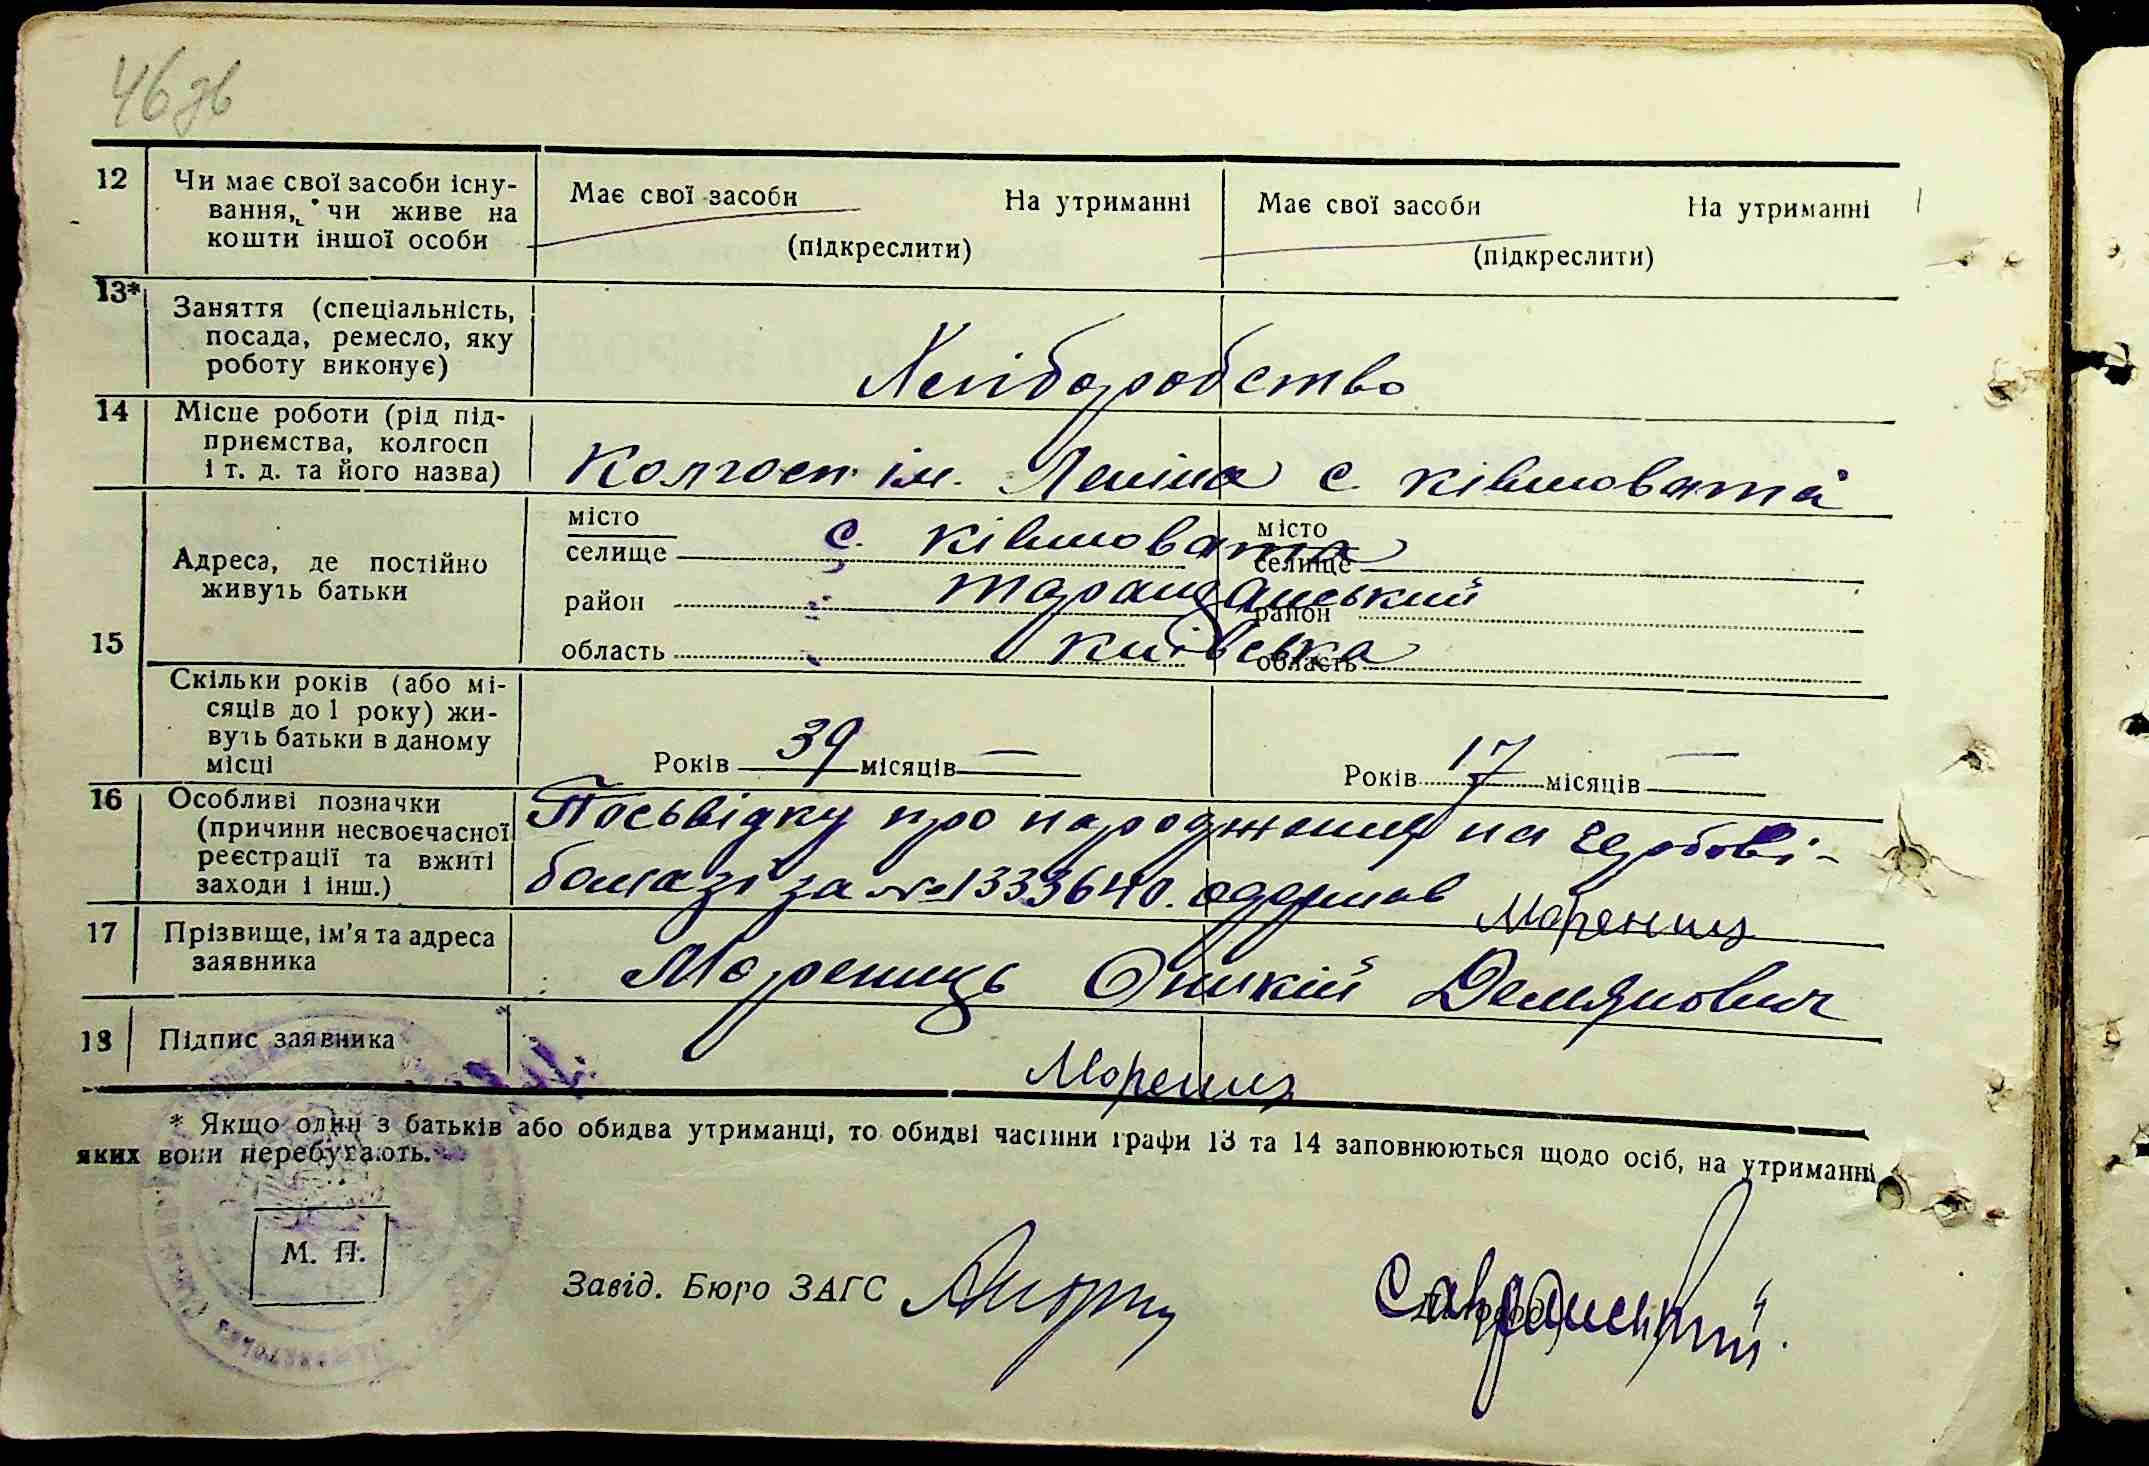 46 зв
12 Чи має свої засоби існу-
вання, чи живе на
кошти іншої особи
Має свої засоби На утриманні
(підкреслити)
Має свої засоби На утриманні
(підкреслити)
13* Заняття (спеціальність,
посада, ремесло, яку
роботу виконує)
Хліборобство
14 Місце роботи (рід під-
приємства, колгосп
і т. д. та його назва)
Колгосп ім. Леніна с. Ківшовата
15 Адреса, де постійно
живуть батьки
місто
селище с. Ківшовата
район Таращанський
область Київська
місто
селище
район
область
Скільки років (або мі-
сяців до 1 року) жи-
вуть батьки в даному
місці
Років 39 місяців —
Років 17 місяців —
16 Особливі позначки
(причини несвоєчасної
реєстрації та вжиті
заходи і інш.)
Посьвідку про народження на гербові-
бомазі за № 1333640. одержавМорениць
17 Прізвище, ім'я та адреса
заявника
Морениць Оникій Демянович
18 Підпис заявника
Морениць
* Якщо один з батьків або обидва утриманці, то обидві частини графи 13 та 14 заповнюються щодо осіб, на утриманні
яких вони перебувають.
М. П.
Завід. Бюро ЗАГС
Савранський